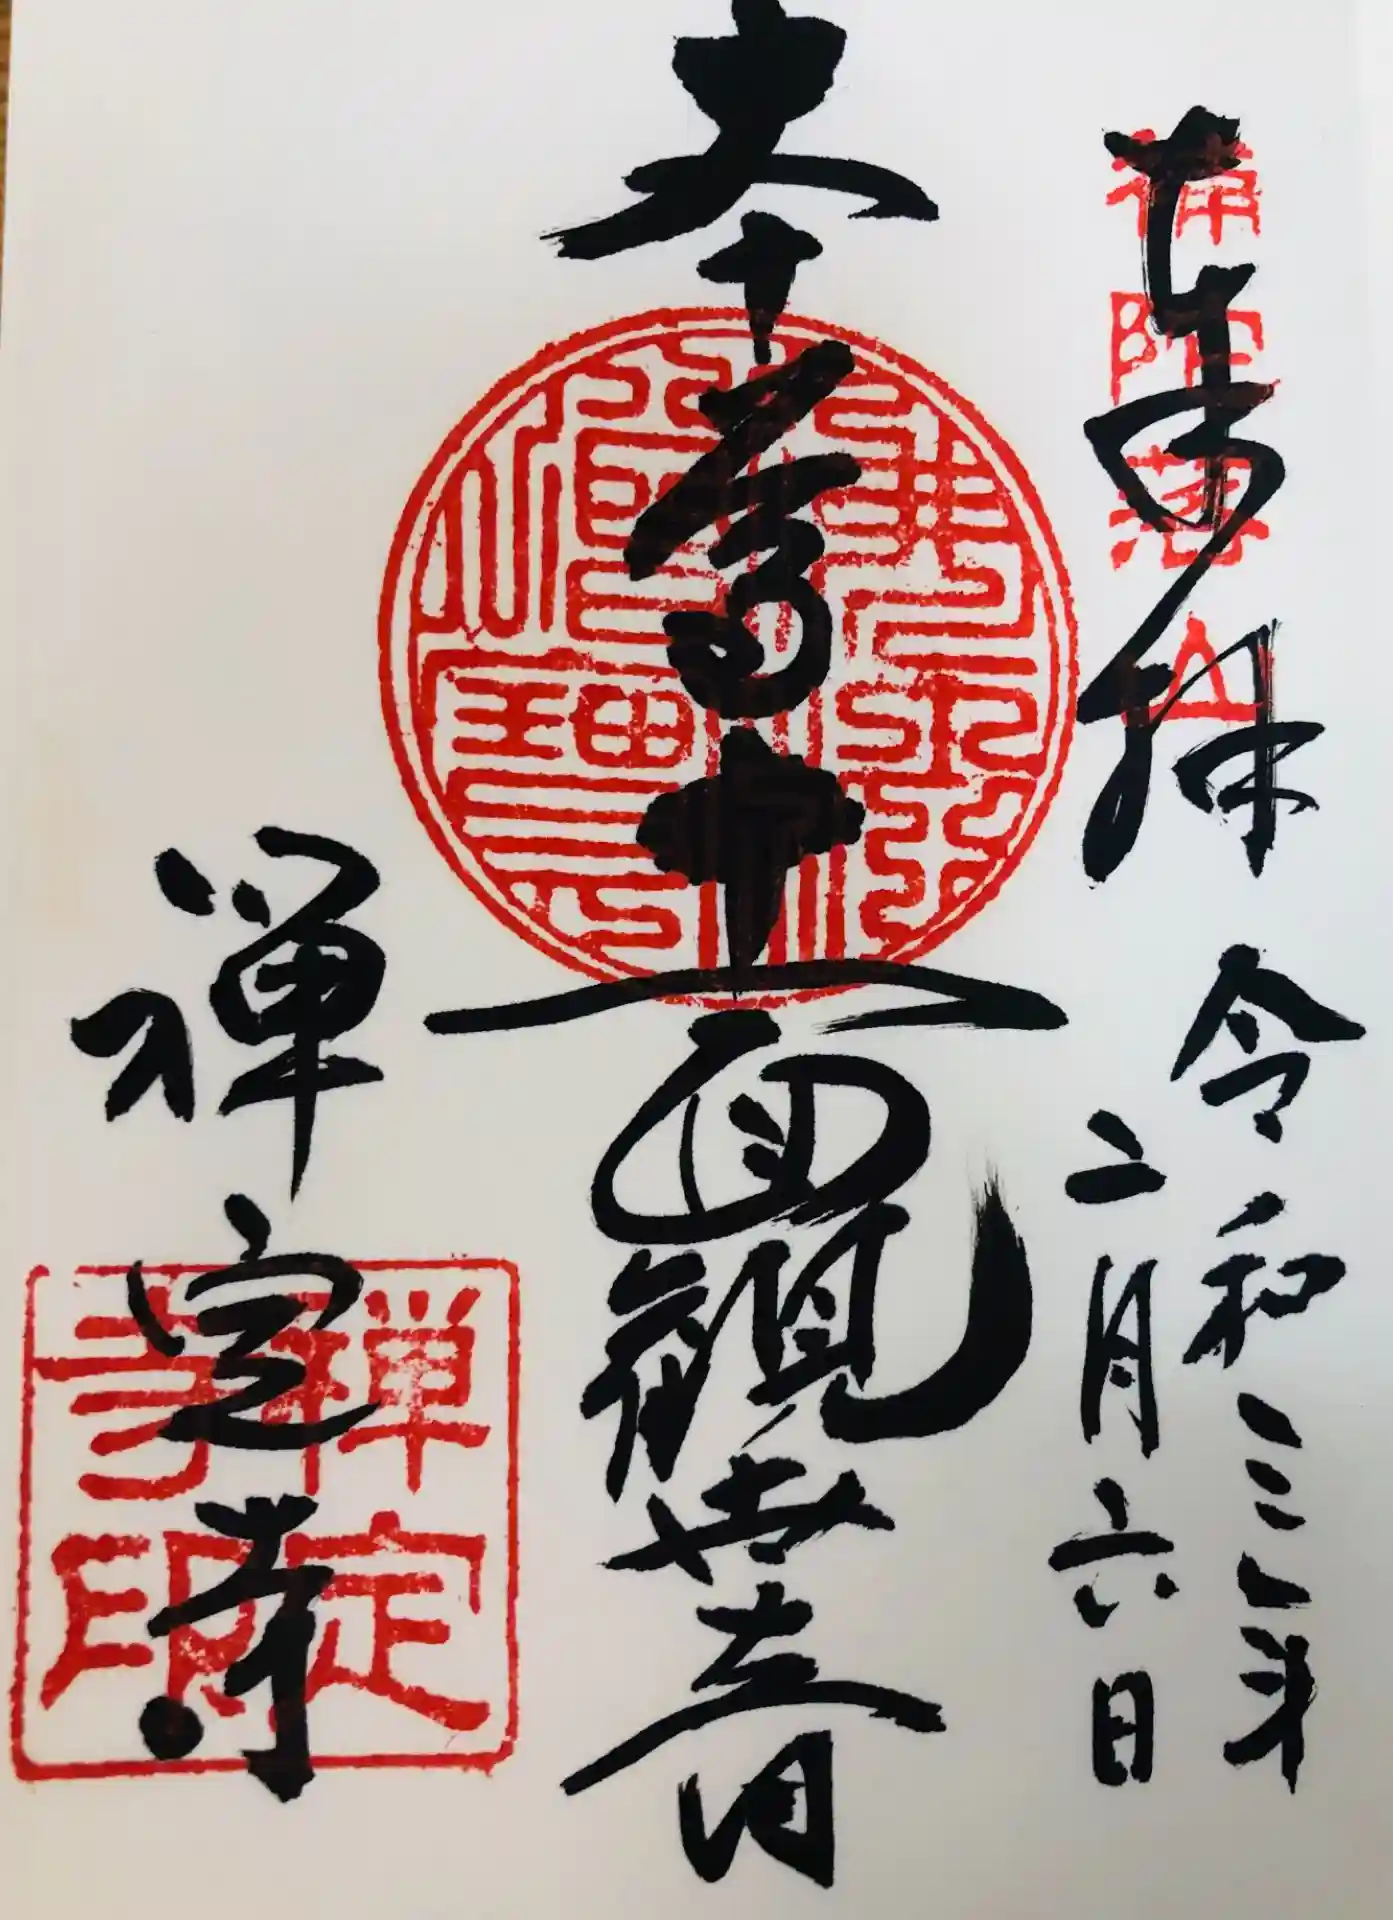 奉拝
補陀落山
令和三年
二月六日
本尊十一面観世音
禅定寺
禅定
寺印